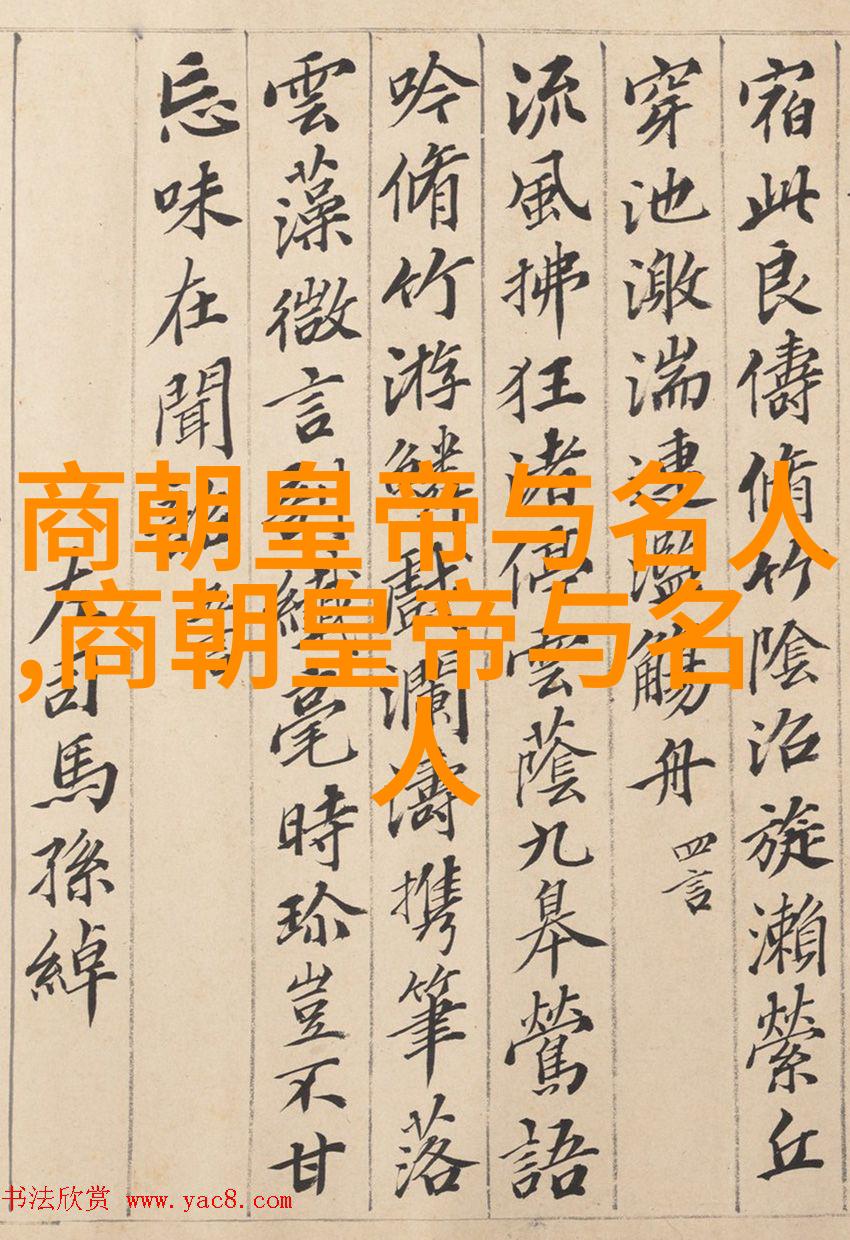 宿此良儔脩竹陰沼旋瀨縈丘
穿池激湍連濫觴舟 四言
流風拂狂渚停雲蔭九皋鶯語
吟脩竹游鱗戲瀾濤携筆落
雲藻微言剖纖毫時珍豈不甘
忘味在聞韶
左司馬孫綽
商朝皇帝与名人
,商朝皇帝与名
人
书法欣赏 www.yac8.com